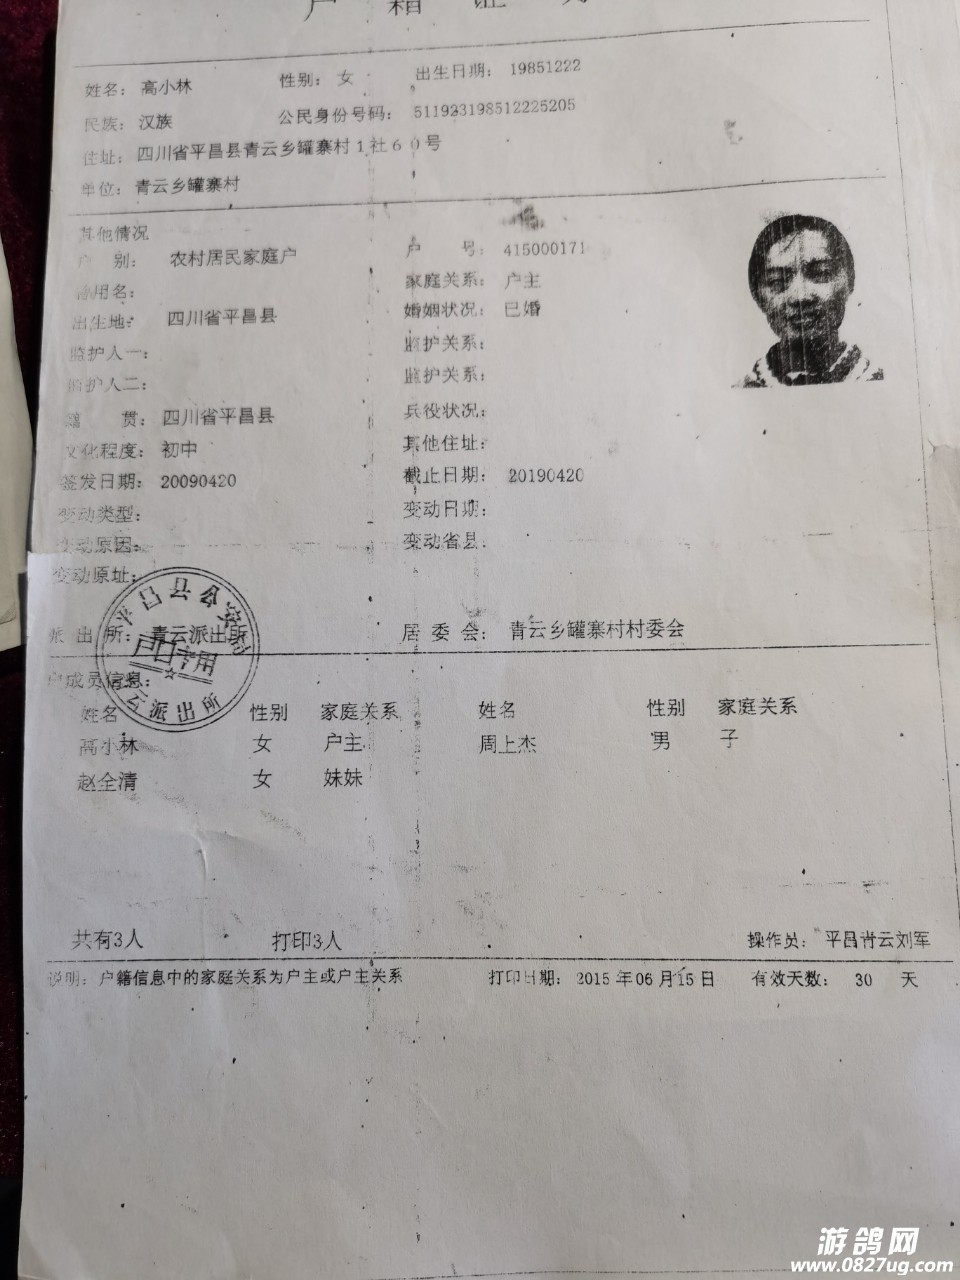 户 籍 证 明
姓名： 高小林 性别： 女 出生日期： 19851222
民族： 汉族 公民身份号码： 511923198512225205
住址： 四川省平昌县青云乡罐寨村1社60号
单位： 青云乡罐寨村
其他情况
户 别： 农村居民家庭户 户 号： 415000171
曾用名： 家庭关系： 户主
出生地： 四川省平昌县 婚姻状况： 已婚
监护人一： 监护关系：
监护人二： 监护关系：
籍 贯： 四川省平昌县 兵役状况：
文化程度： 初中 其他住址：
签发日期： 20090420 截止日期： 20190420
变动类型： 变动日期：
变动原因： 变动省县：
变动原址：
派 出 所： 青云派出所 居 委 会： 青云乡罐寨村村委会
平昌县公安局
户口专用
青云派出所
户成员信息：
姓名 性别 家庭关系 姓名 性别 家庭关系
高小林 女 户主 周上杰 男 子
赵全清 女 妹妹
共有3人 打印3人 操作员： 平昌青云刘军
说明： 户籍信息中的家庭关系为户主或户主关系 打印日期： 2015 年 06 月 15 日 有效天数： 30 天
游鸽网
www.0827ug.com